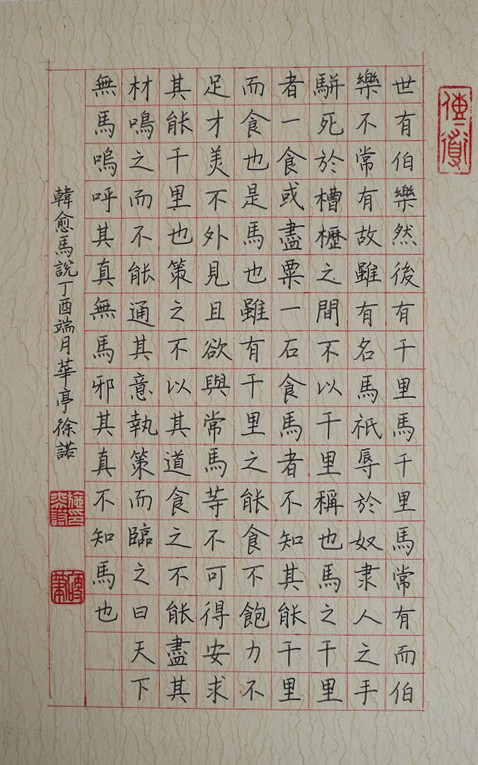 世有伯樂然後有千里馬千里馬常有而伯
樂不常有故雖有名馬祇辱於奴隶人之手
駢死於槽櫪之間不以千里稱也馬之千里
者一食或盡粟一石食馬者不知其能千里
而食也是馬也雖有千里之能食不飽力不
足才美不外見且欲與常馬等不可得安求
其能千里也策之不以其道食之不能盡其
材鳴之而不能通其意執策而臨之曰天下
無馬嗚呼其真無馬邪其真不知馬也
韓愈馬說丁酉端月華亭徐諾